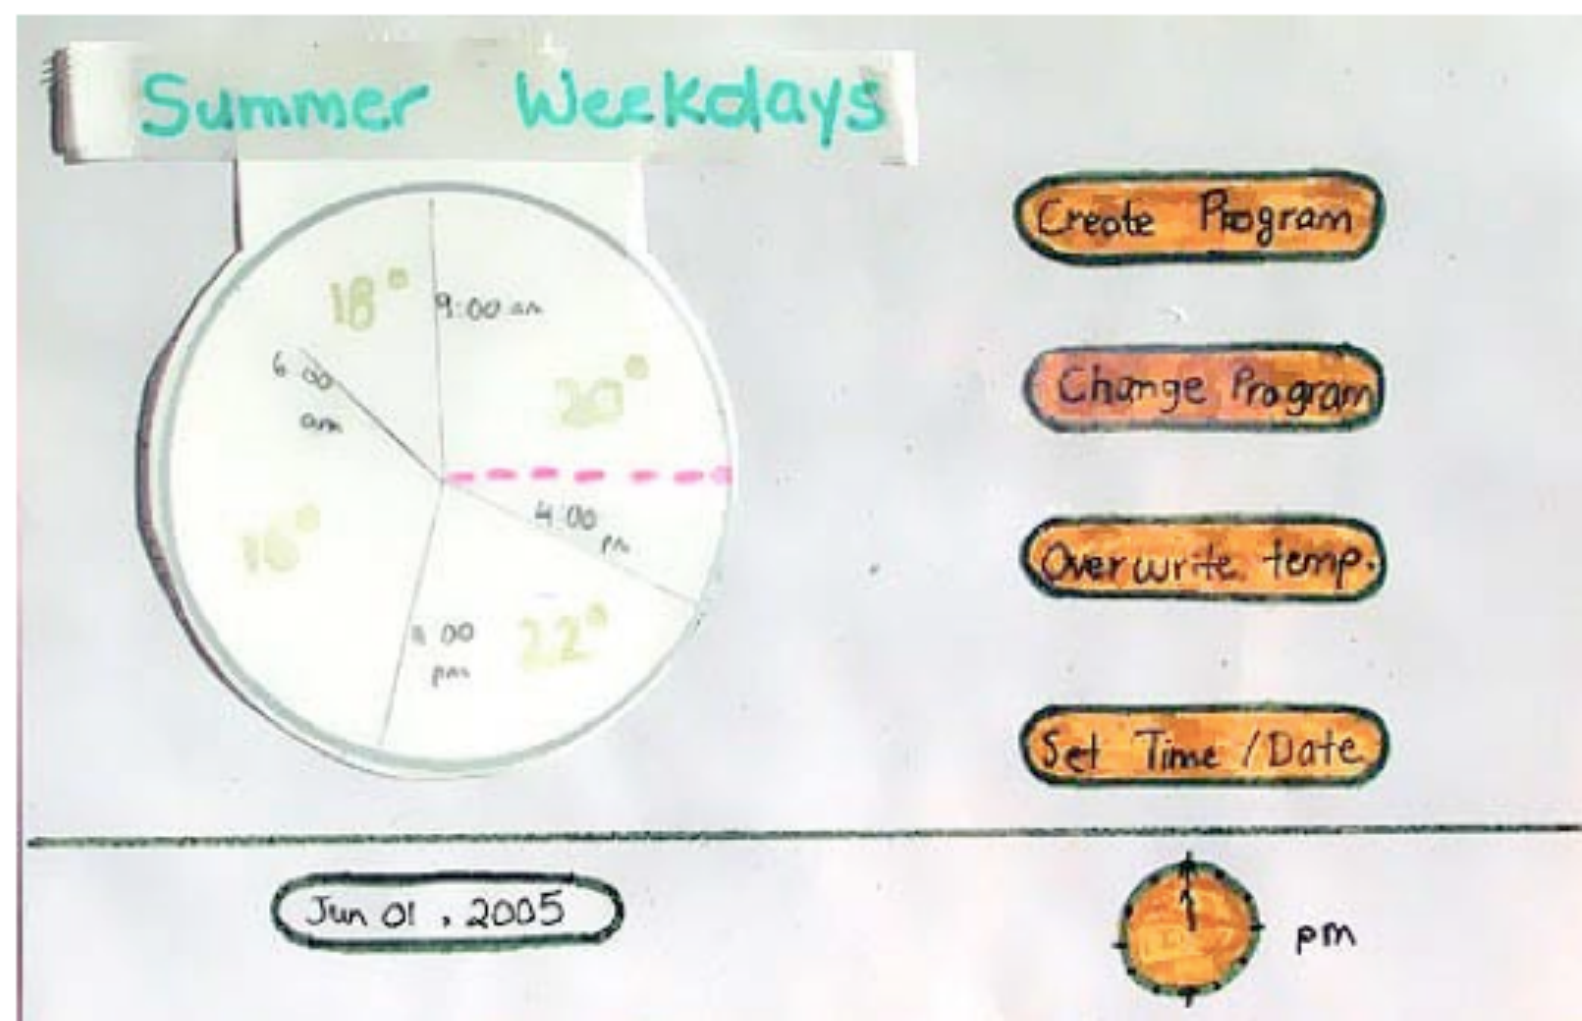 Summer Weekdays
18°
9:00 am
6:00
am
20°
4:00
pm
00
pm
22°
Create Program
Change Program
Overwrite temp.
Set Time/Date
Jun 01, 2005
pm